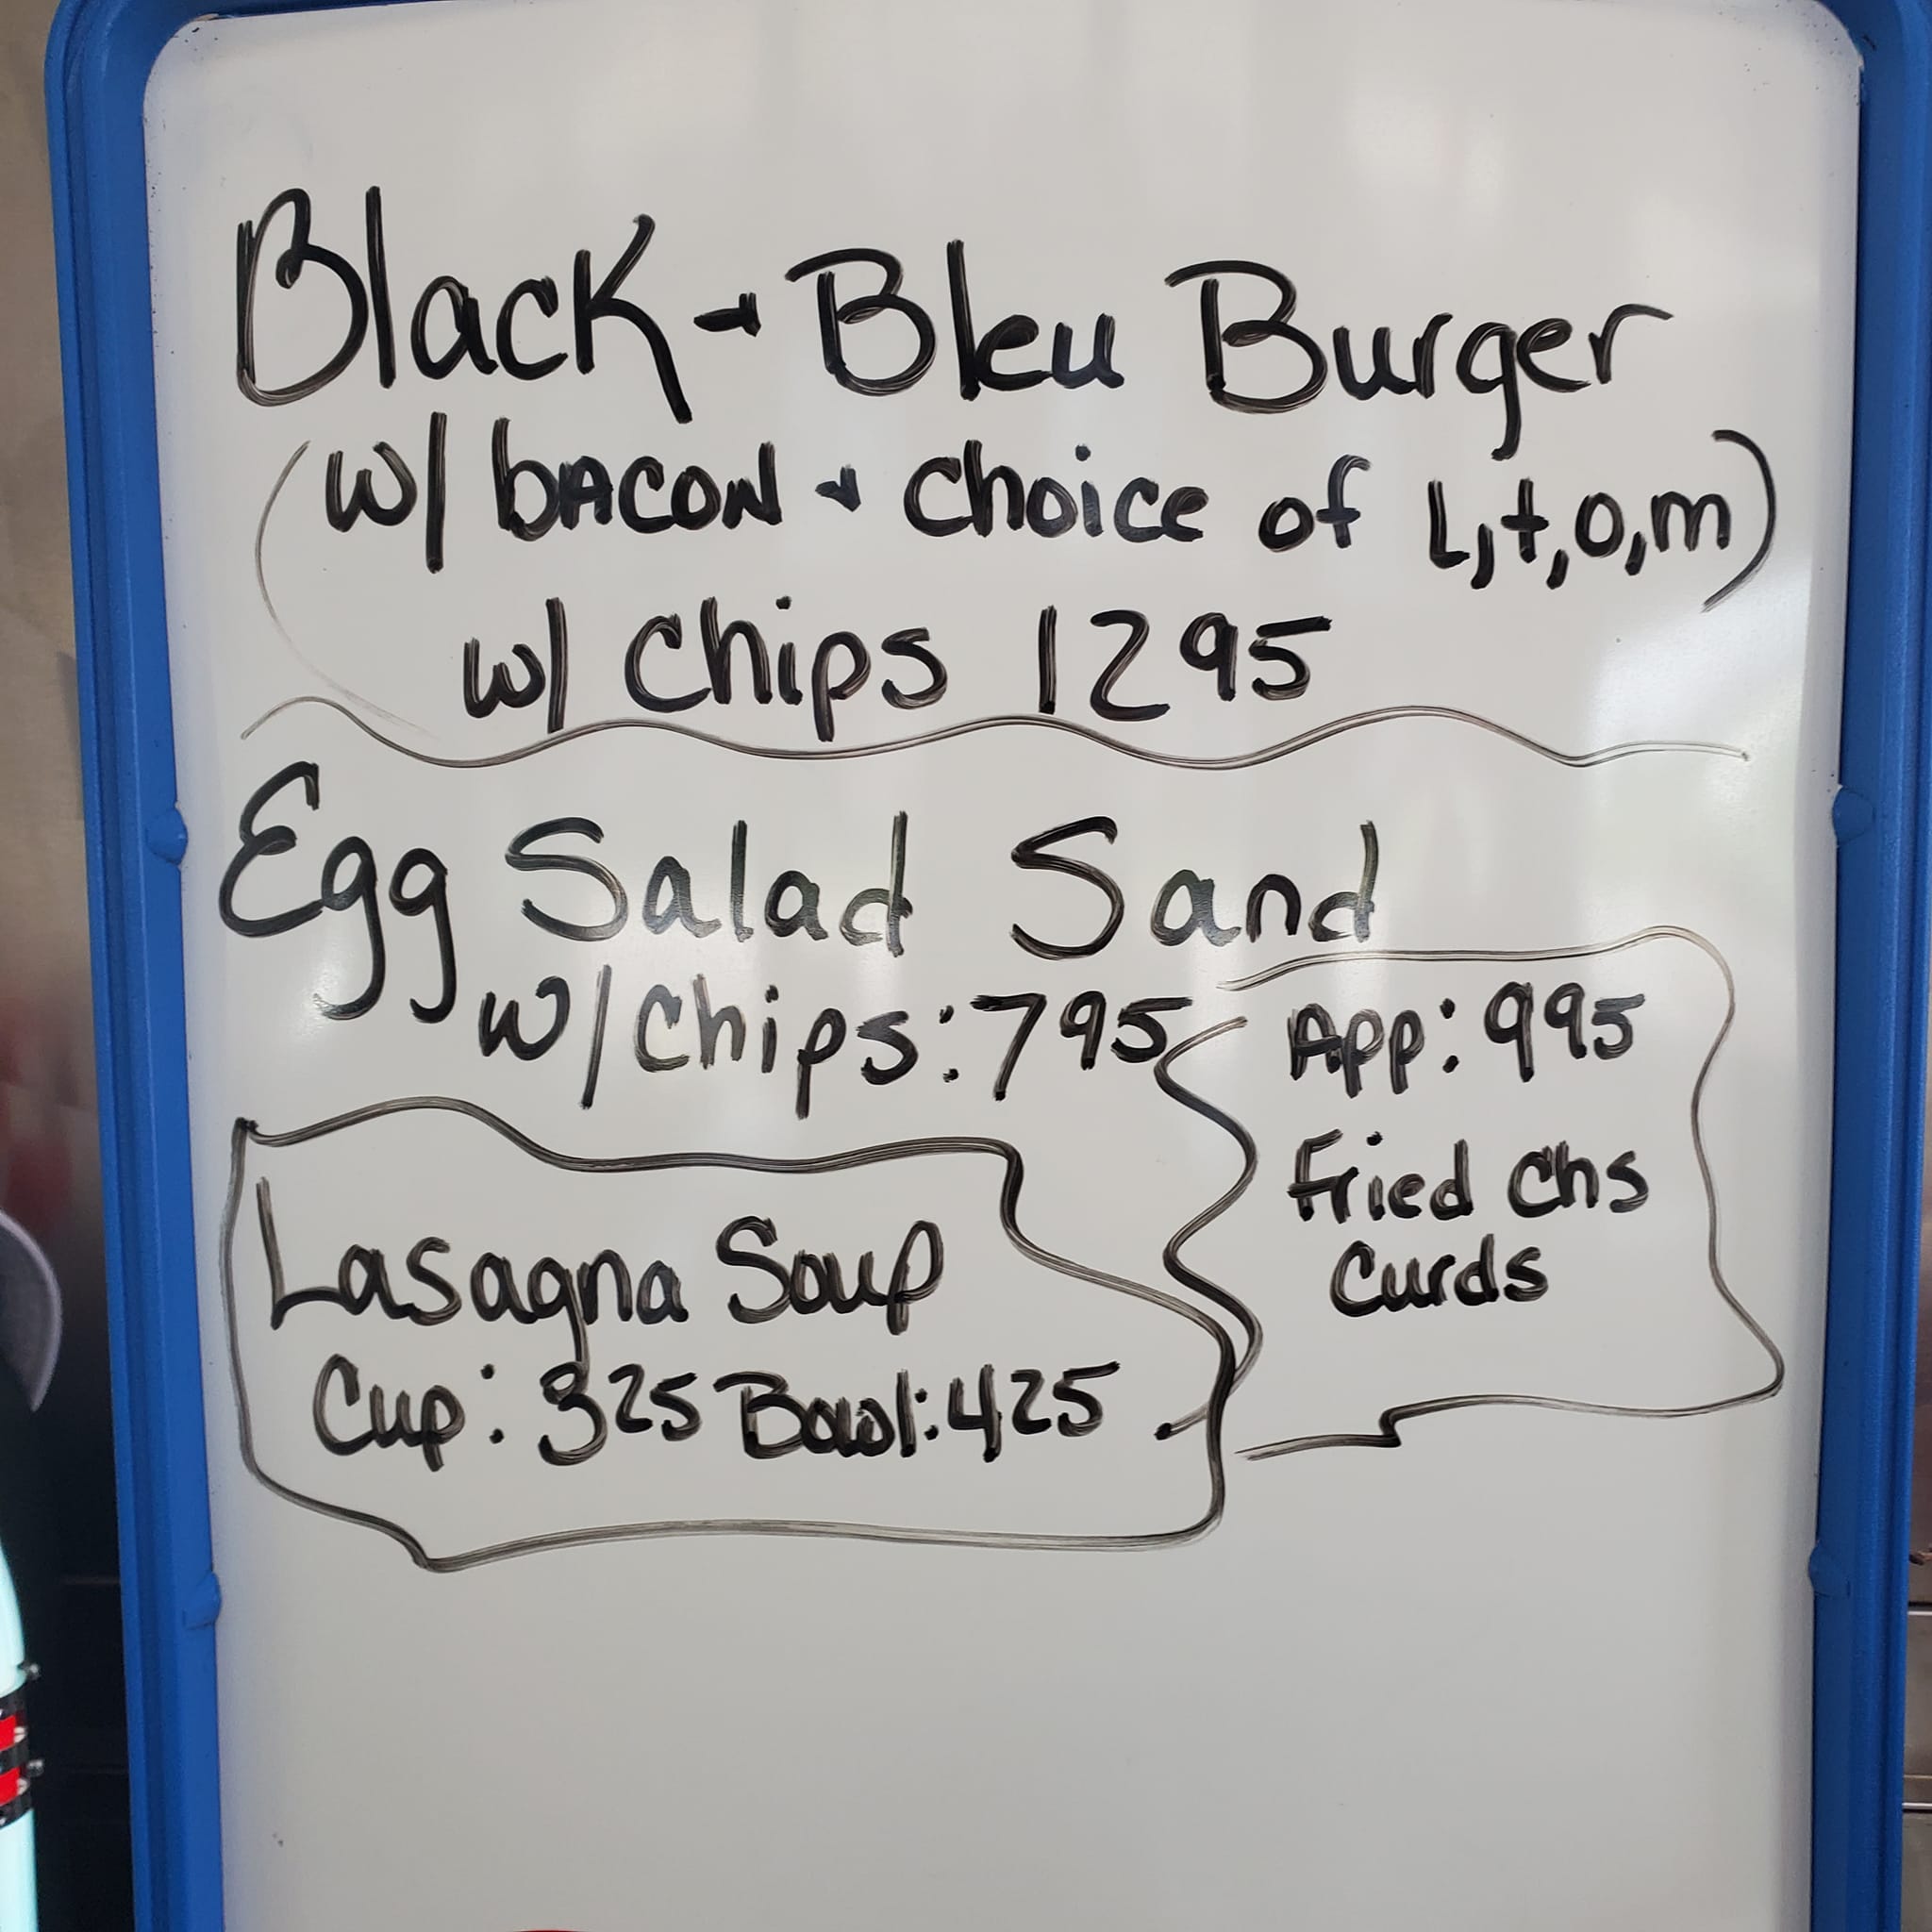 Black + Bleu Burger
(w/ bacon + choice of L,t,o,m)
w/ Chips 1295
Egg Salad Sand
w/Chips: 795
App: 995
Fried Chs
Curds
Lasagna Soup
Cup: 325 Bowl: 425